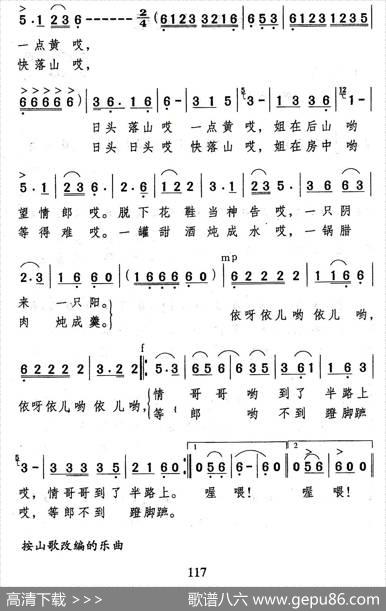 5·1 23 6------ 2/4 (6123 1216 | 653 | 61231235
一点黄 哎，
快落山 哎，
66666) | 36·16 | 6- | 315 | 3- | 1336 | 1- |
日头 落山 哎 一点黄 哎，姐在后山 哟
日头 日头 哎 快落山 哎，姐在房中 哟
5·1 | 236· | 2·6 | 122 | 3·1 | 0231 | 633 |
望情 郎 哎。脱下 花 鞋 当神 告 哎，一只阴
等得 难 哎。一罐 甜 酒 炖成 水 哎，一锅腊
2·3 | 1660 | 01 | (16660) | 62222 | 1166 |
mp
来 一只阳。
肉 炖成羹。
依呀依儿哟 依儿 哟，
62222 | 3122 | 3·2 :‖: 5·3 | 535 | 335 | 361 | 163 |
f
依呀依儿哟 依 儿 哟，
情 哥 哥 哟 到 了 半路上
等 郎 哟 不到 蹬脚蹠
3- | 33335 | 2160 | 056 | 6-6 | 0 :‖ 056 | 600 ‖
1
2
哎，情哥哥到了 半路上。 喔 喂！ 喔 喂！
哎，等郎不到 蹬脚蹠。
按山歌改编的乐曲
117
高清下载 >>>
歌谱八六 www.gepu86.com